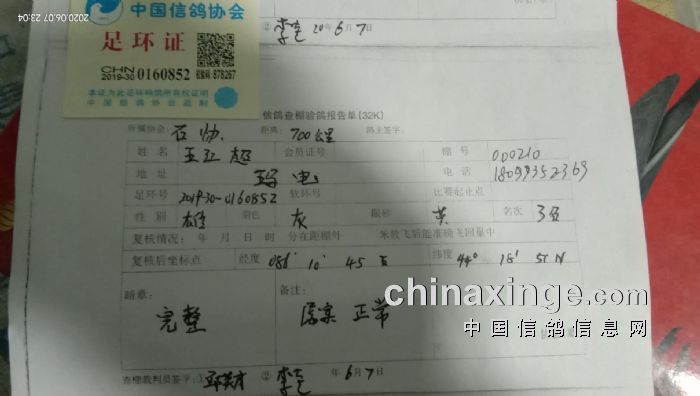 2020.06.07 23:04
中国信鸽协会
足环证
CHN
2019-30 0160852
878267
本证为此足环鸽所有权证明
中国信鸽协会监制
② 李 20年6月7日
信鸽查棚验鸽报告单(32K)
所属协会: 石协. 距离: 700公里 鸽主签字:
姓名 王红超 会员证号 棚号 000210
地址 电话 18099352369
足环号 2019-30-0160852 软环号 比赛起止点
性别 雄 羽色 灰 眼砂 黄 名次 3名
复核情况: 年 月 日 时 分在距棚外 米放飞后能准确飞回巢中
复核后坐标点 经度 086° 10' 45 E 纬度 44° 18' 51 N
暗章: 备注:
完整 正常
chinaxinge.com
中国信鸽信息网
查棚裁判员签字: ② 李 年6月7日